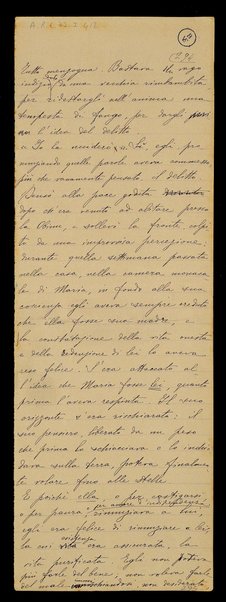 294
Tutta menzogna. Bastava un vago
indizio di una vecchia rimbambita
per ridestargli nell'anima una
tempesta di fango, per dargli
l'idea del delitto.
« Io la ucciderò ». Sì: egli pro-
nunziando quelle parole aveva commesso
più che vanamente pensato il delitto.
Pensò alla pace goduta
dopo ch'era venuto ad abitare presso
la Obinu, e sollevò la fronte, colpi-
to da una improvvisa percezione:
durante quella settimana passata
nella casa, nella camera monaca-
le di Maria, in fondo alla sua
coscienza egli aveva sempre creduto
che ella fosse sua madre, e
la constatazione della vita onesta
e della redenzione di lei lo aveva
reso felice. S'era attaccato al
l'idea che Maria fosse lei, quanto
prima l'aveva respinta. Il suo
orizzonte s'era rischiarato: il
suo pensiero, liberato da un peso
che prima lo schiacciava e lo inchio-
dava sulla terra, poteva finalmen-
te volare fino alle stelle.
E poiché ella, o per castigarsi
o per paura, o per amore d'indipendenza, rinunziava a lui,
egli era felice di rinunziare a lei,
la cui esistenza era assicurata, la
vita purificata. Egli non poteva
più farle del bene, non voleva farle
del male, non desiderata